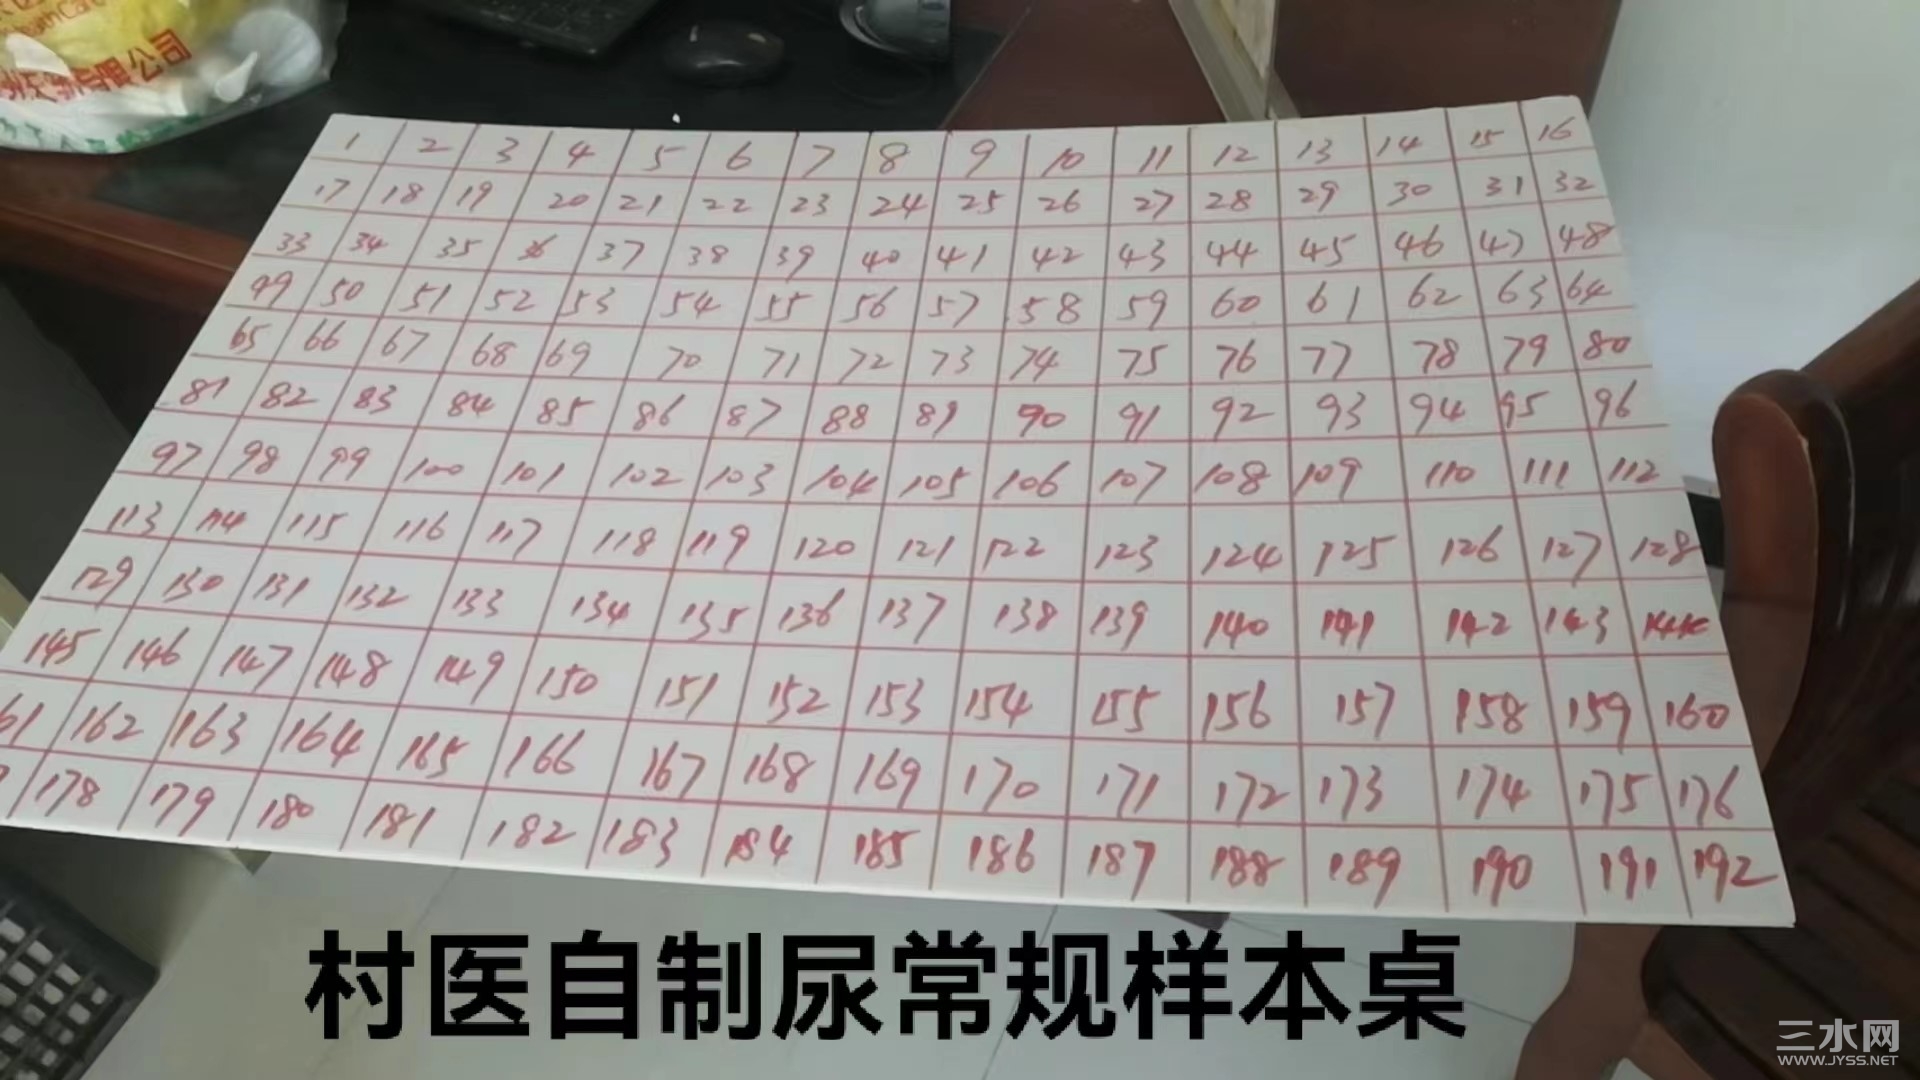 州天新有限公司
1 2 3 4 5 6 7 8 9 10 11 12 13 14 15 16
17 18 19 20 21 22 23 24 25 26 27 28 29 30 31 32
33 34 35 36 37 38 39 40 41 42 43 44 45 46 47 48
49 50 51 52 53 54 55 56 57 58 59 60 61 62 63 64
65 66 67 68 69 70 71 72 73 74 75 76 77 78 79 80
81 82 83 84 85 86 87 88 89 90 91 92 93 94 95 96
97 98 99 100 101 102 103 104 105 106 107 108 109 110 111 112
113 114 115 116 117 118 119 120 121 122 123 124 125 126 127 128
129 130 131 132 133 134 135 136 137 138 139 140 141 142 143 144
145 146 147 148 149 150 151 152 153 154 155 156 157 158 159 160
61 162 163 164 165 166 167 168 169 170 171 172 173 174 175 176
178 179 180 181 182 183 184 185 186 187 188 189 190 191 192
村医自制尿常规样本桌
三水网
WWW.JYSS.NET